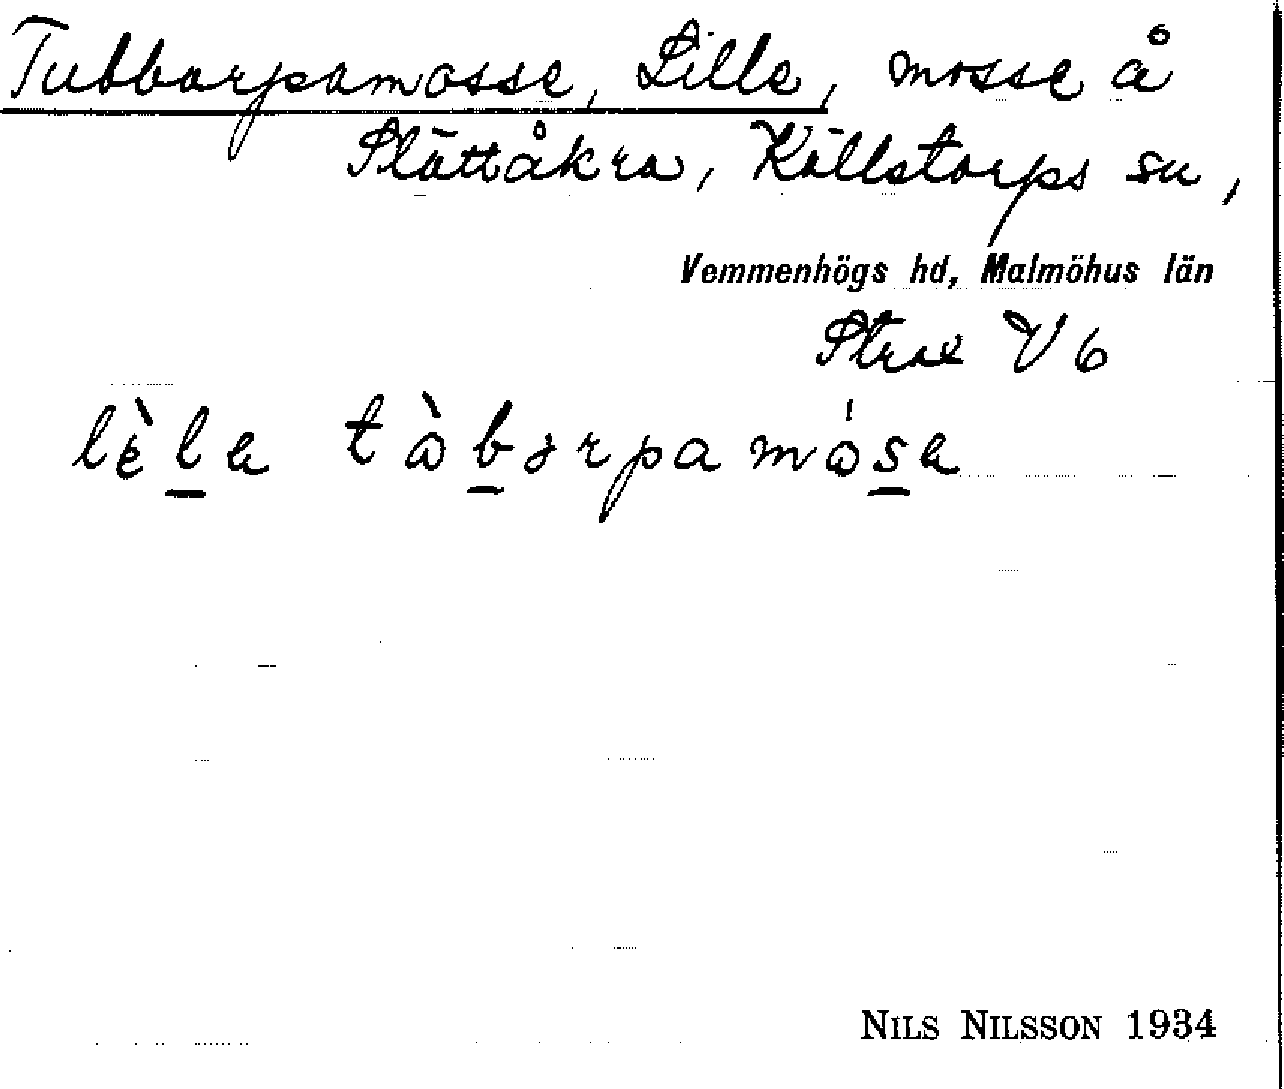 Tubbarpamosse, Lille, mosse å
Slättåkra, Källstorps sn,
Vemmenhögs hd, Malmöhus län
Strax V 6
NILS NILSSON 1934